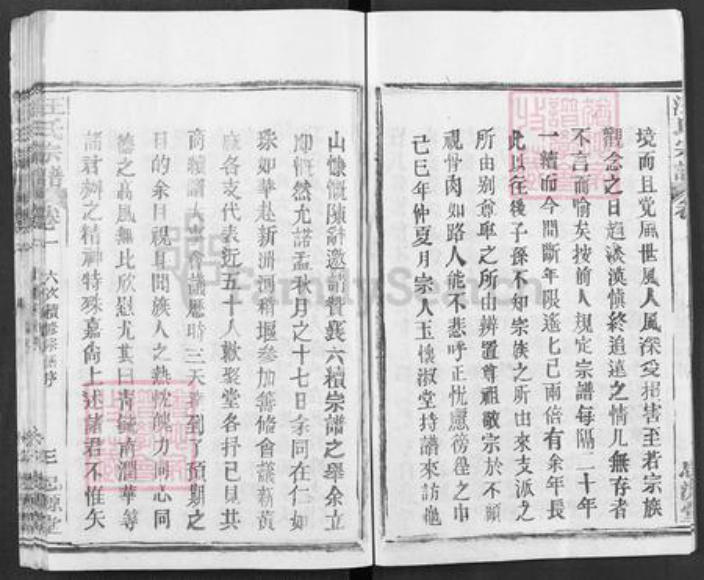 境而且党風世風人風深受損害至若宗族
觀念之日趨淡漠愼終追遠之情几無存者
不言而喻矣按前人規定宗譜每隔二十年
一續而今間断年限遙七已兩倍有余年長
此以往後子孫不知宗族之所由來支派之
所由别尊卑之所由辨置尊祖敬宗於不顧
視骨肉如路人能不悲呼正忧慮徬徨之中
己巳年仲夏月宗人玉懷淑堂持譜來訪
山慷慨陳辭邀請賛襄六續宗譜之舉余立
即慨然允諾孟秋月之十七日余同在仁如
珠如華赴新洲河稍堰参加籌修會議新黄
麻各支代表近五十人歡聚堂各抒己見共
商續譜大事會議歷時三天達到了預期之
目的余目視耳聞族人之熱忱魄力同心同
德之高風無比欣慰尤其曰青毓南潤華等
諸君辦之精神特殊嘉尙上述諸君不惟矢
汪氏宗譜
卷一
六次續修宗譜序